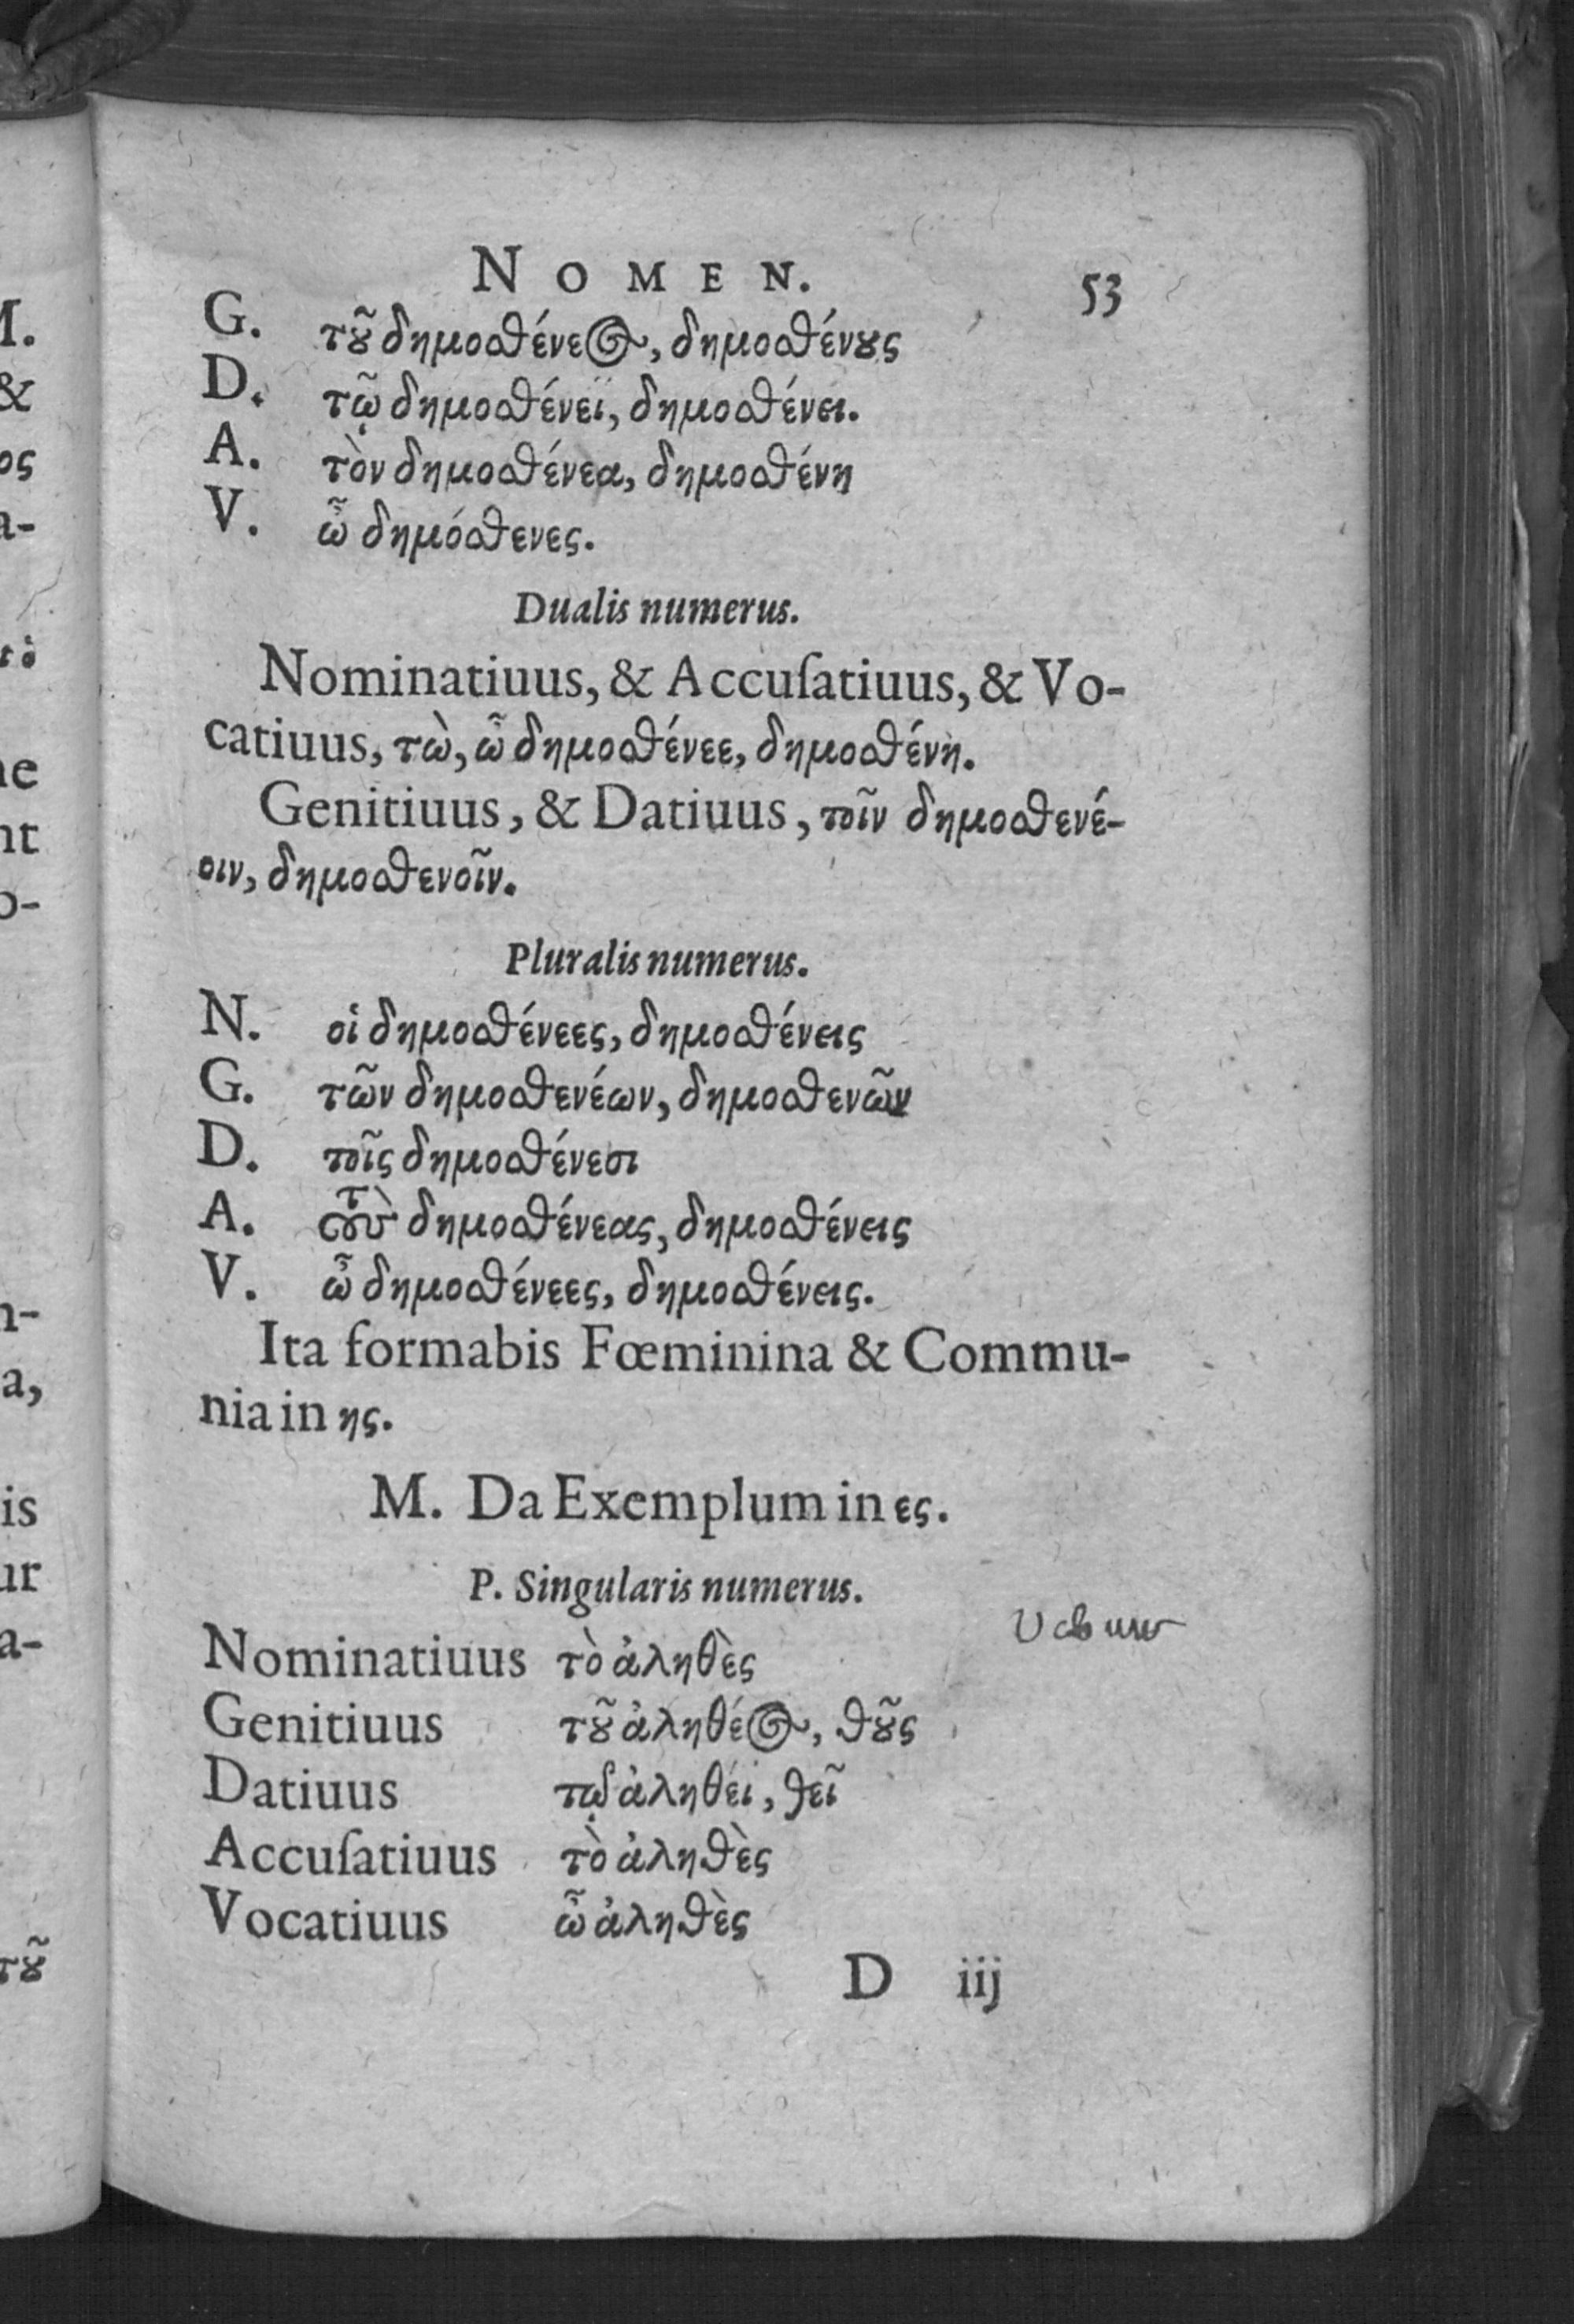 NOMEN. 53
G. τοῦ δημοσθένεος, δημοσθένους
D. τῷ δημοσθένεϊ, δημοσθένει.
A. τὸν δημοσθένεα, δημοσθένη
V. ὦ δημόσθενες.
Dualis numerus.
Nominatiuus, & Accuſatiuus, & Vo-
catiuus, τὼ, ὦ δημοσθένεε, δημοσθένη.
Genitiuus, & Datiuus, τοῖν δημοσθενέ-
οιν, δημοσθενοῖν.
Pluralis numerus.
N. οἱ δημοσθένεες, δημοσθένεις
G. τῶν δημοσθενέων, δημοσθενῶν
D. τοῖς δημοσθένεσι
A. τοὺς δημοσθένεας, δημοσθένεις
V. ὦ δημοσθένεες, δημοσθένεις.
Ita formabis Fœminina & Commu-
nia in ης.
M. Da Exemplum in ες.
P. Singularis numerus.
Nominatiuus τὸ ἀληθὲς
Genitiuus τοῦ ἀληθέος, θοῦς
Datiuus τῷ ἀληθέι, θεῖ
Accuſatiuus τὸ ἀληθὲς
Vocatiuus ὦ ἀληθὲς
D iij